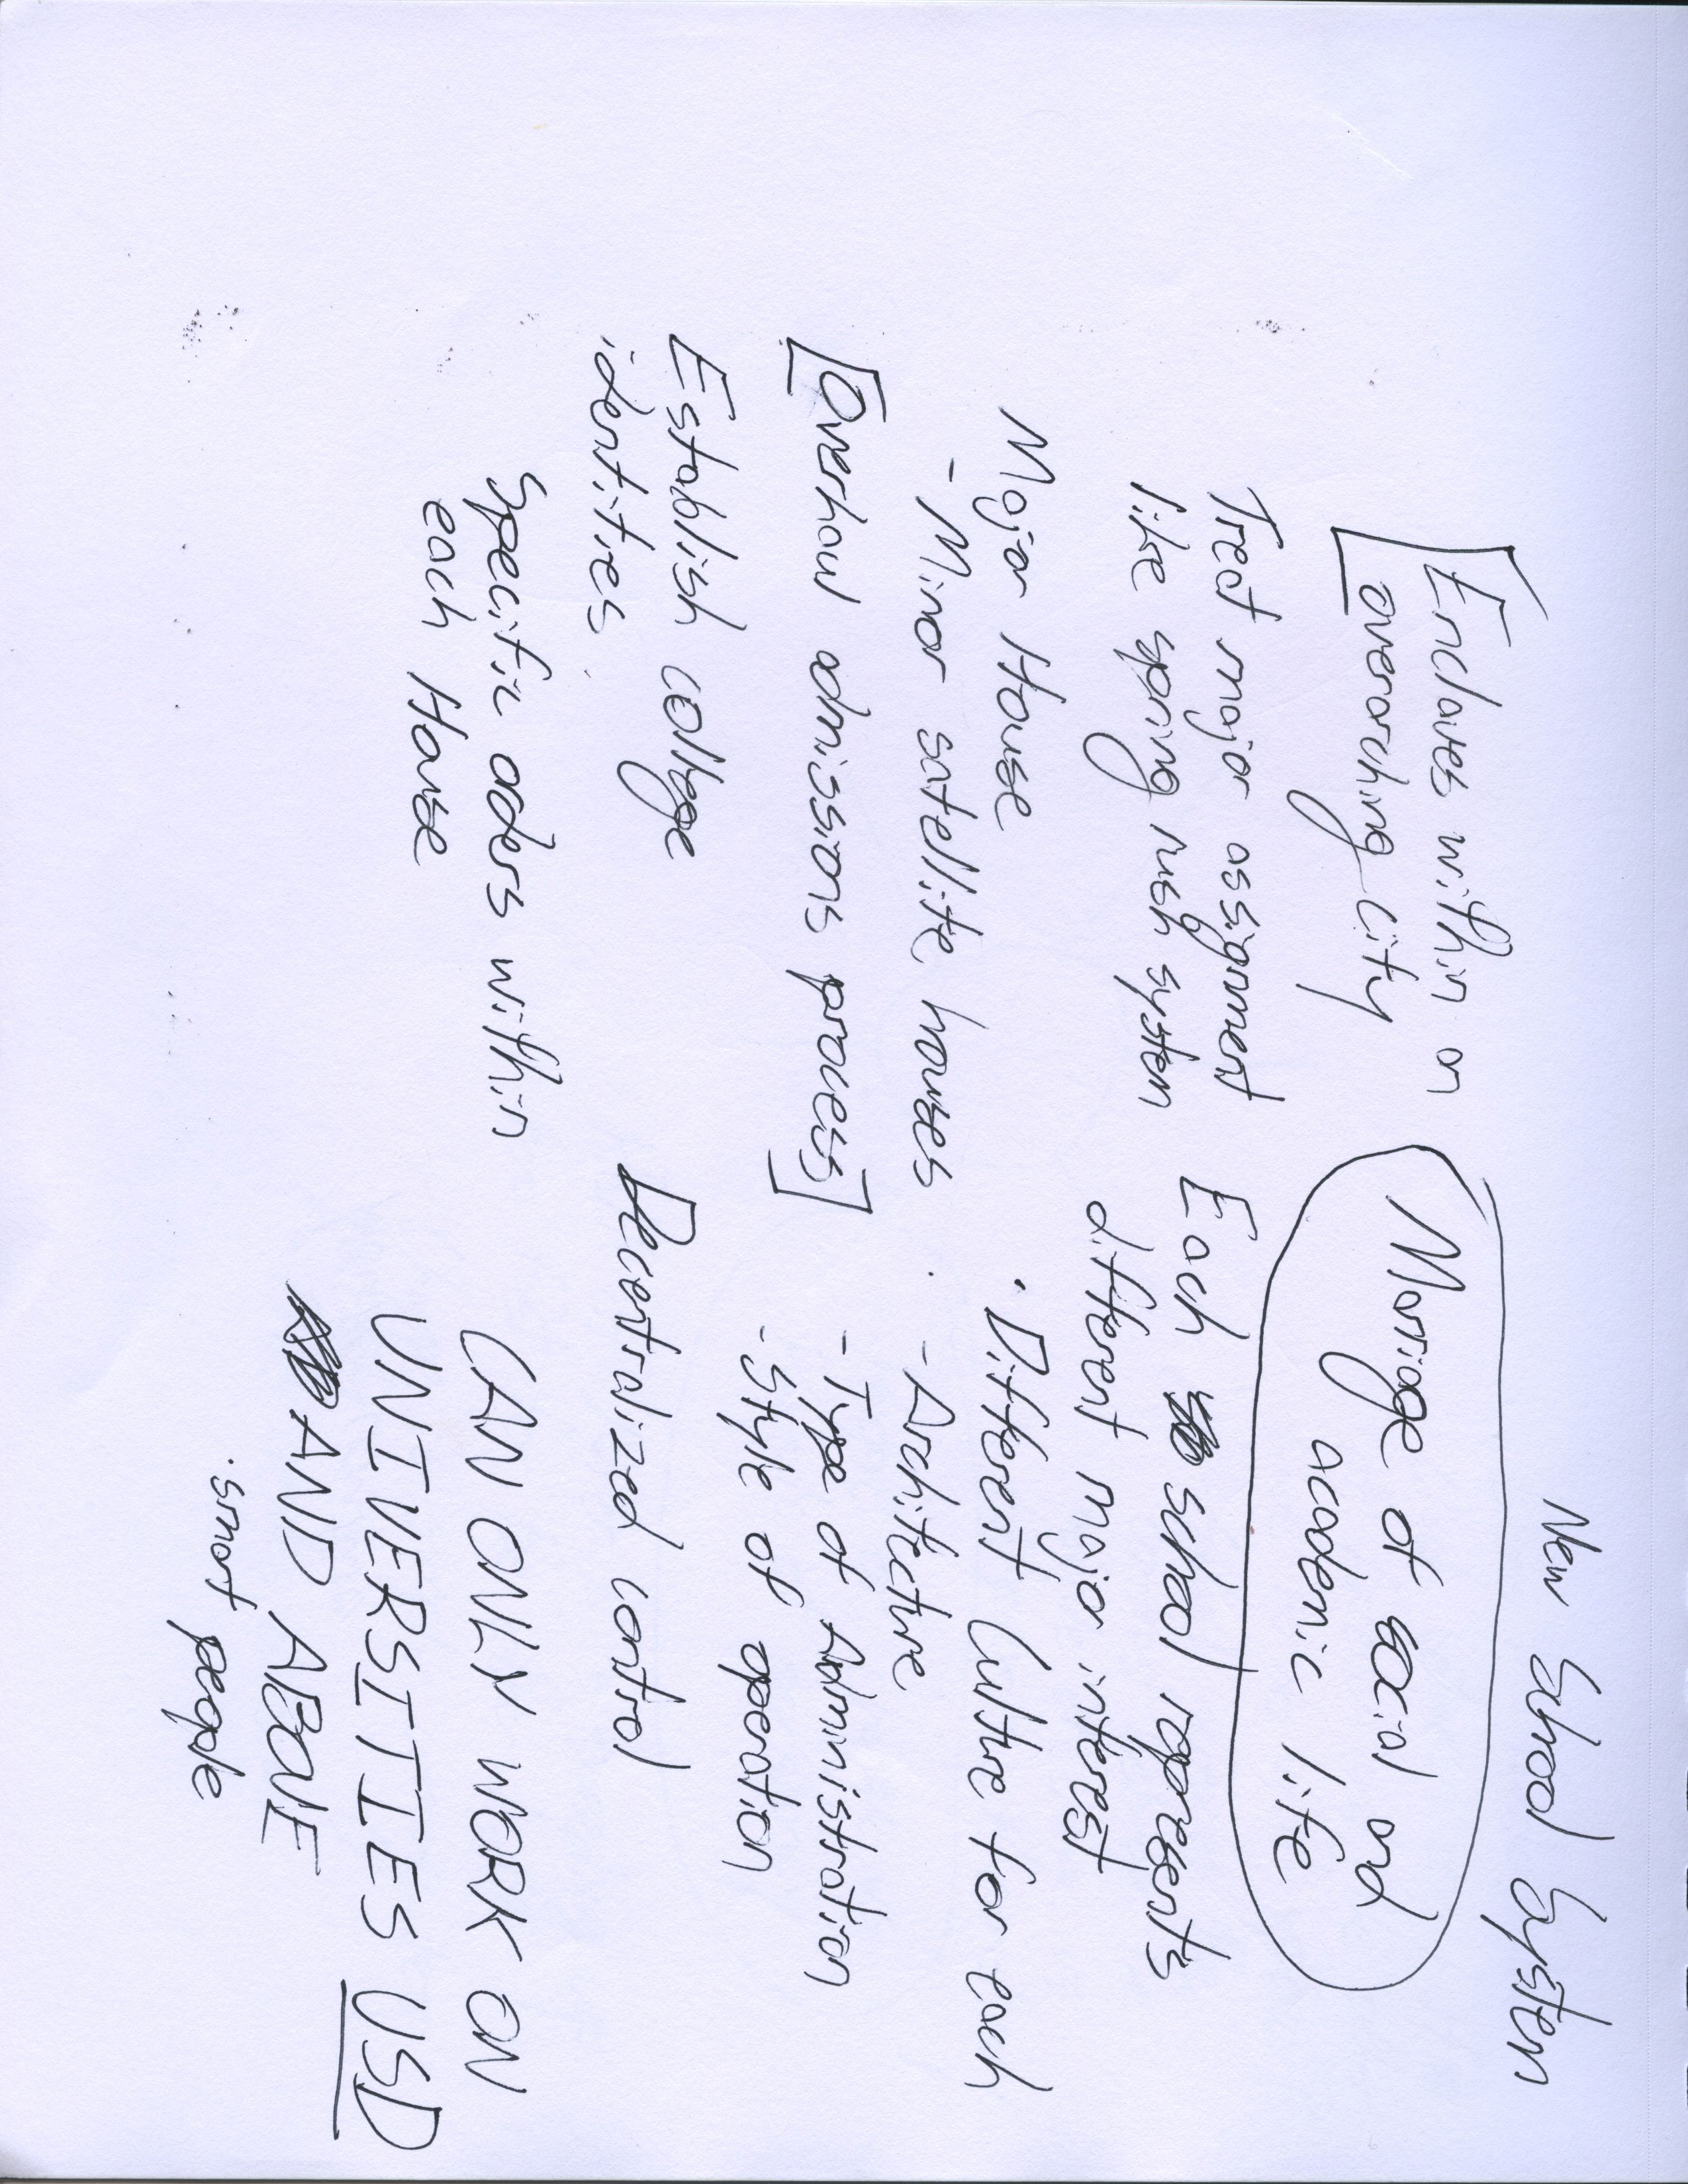 New School System
[Enclaves within an
overarching city
Treat major assignment
like spring rush system
Major House
- Minor satellite houses
[Overhaul admissions process]
Establish college
identities
Specific orders within
each House
Marriage of social and
academic life
Each school represents
different major interest
• Different Culture for each
- Architecture
- Type of Administration
- Style of operation
Decentralized control
CAN ONLY WORK ON
UNIVERSITIES USD
AND ABOVE
• smart people